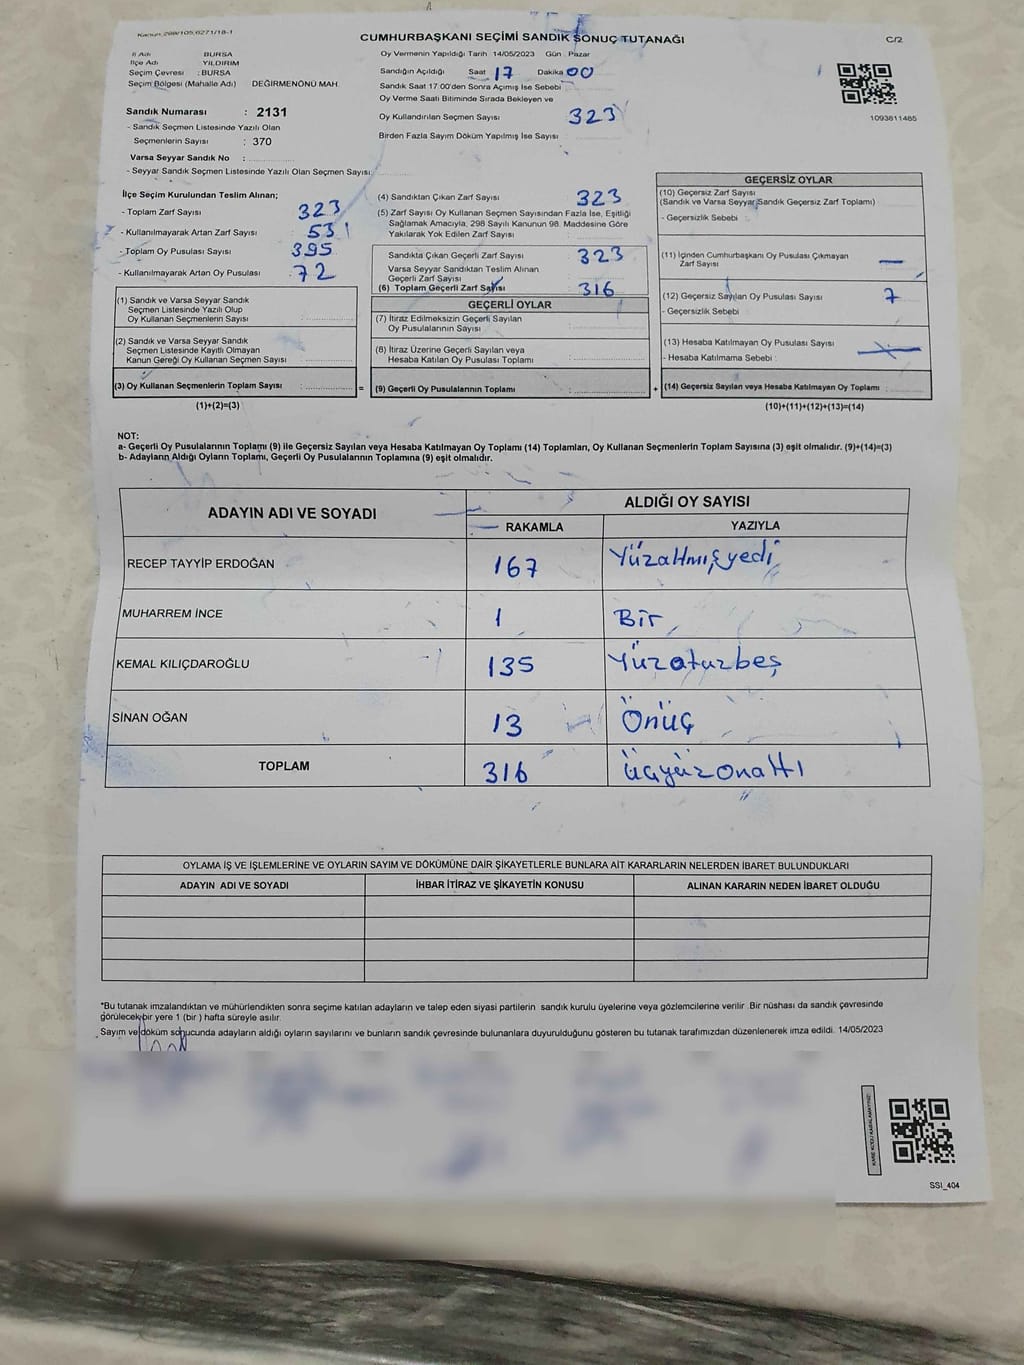 Kanun_298/105,6271/18-1
CUMHURBAŞKANI SEÇİMİ SANDIK SONUÇ TUTANAĞI
C/2
İl Adı : BURSA
İlçe Adı : YILDIRIM
Seçim Çevresi : BURSA
Seçim Bölgesi (Mahalle Adı) DEĞİRMENÖNÜ MAH.
Sandık Numarası : 2131
- Sandık Seçmen Listesinde Yazılı Olan
Seçmenlerin Sayısı : 370
Varsa Seyyar Sandık No :
- Seyyar Sandık Seçmen Listesinde Yazılı Olan Seçmen Sayısı:
Oy Vermenin Yapıldığı Tarih 14/05/2023 Gün Pazar
Sandığın Açıldığı Saat 17 Dakika 00
Sandık Saat 17:00'den Sonra Açılmış İse Sebebi
Oy Verme Saati Bitiminde Sırada Bekleyen ve
Oy Kullandırılan Seçmen Sayısı 323
Birden Fazla Sayım Döküm Yapılmış İse Sayısı :
1093811485
İlçe Seçim Kurulundan Teslim Alınan;
- Toplam Zarf Sayısı 323
- Kullanılmayarak Artan Zarf Sayısı 53
- Toplam Oy Pusulası Sayısı 395
- Kullanılmayarak Artan Oy Pusulası : 72
(1) Sandık ve Varsa Seyyar Sandık
Seçmen Listesinde Yazılı Olup
Oy Kullanan Seçmenlerin Sayısı :
(2) Sandık ve Varsa Seyyar Sandık
Seçmen Listesinde Kayıtlı Olmayan
Kanun Gereği Oy Kullanan Seçmen Sayısı :
(3) Oy Kullanan Seçmenlerin Toplam Sayısı : =
(1)+(2)=(3)
(4) Sandıktan Çıkan Zarf Sayısı 323
(5) Zarf Sayısı Oy Kullanan Seçmen Sayısından Fazla İse, Eşitliği
Sağlamak Amacıyla, 298 Sayılı Kanunun 98. Maddesine Göre
Yakılarak Yok Edilen Zarf Sayısı :
Sandıkta Çıkan Geçerli Zarf Sayısı 323
Varsa Seyyar Sandıktan Teslim Alınan
Geçerli Zarf Sayısı
(6) Toplam Geçerli Zarf Sayısı 316
GEÇERLİ OYLAR
(7) İtiraz Edilmeksizin Geçerli Sayılan
Oy Pusulalarının Sayısı :
(8) İtiraz Üzerine Geçerli Sayılan veya
Hesaba Katılan Oy Pusulası Toplamı :
(9) Geçerli Oy Pusulalarının Toplamı : +
GEÇERSİZ OYLAR
(10) Geçersiz Zarf Sayısı
(Sandık ve Varsa Seyyar Sandık Geçersiz Zarf Toplamı)
- Geçersizlik Sebebi :
(11) İçinden Cumhurbaşkanı Oy Pusulası Çıkmayan
Zarf Sayısı —
(12) Geçersiz Sayılan Oy Pusulası Sayısı 7
- Geçersizlik Sebebi :
(13) Hesaba Katılmayan Oy Pusulası Sayısı
- Hesaba Katılmama Sebebi :
(14) Geçersiz Sayılan veya Hesaba Katılmayan Oy Toplamı :
(10)+(11)+(12)+(13)=(14)
NOT:
a- Geçerli Oy Pusulalarının Toplamı (9) ile Geçersiz Sayılan veya Hesaba Katılmayan Oy Toplamı (14) Toplamları, Oy Kullanan Seçmenlerin Toplam Sayısına (3) eşit olmalıdır. (9)+(14)=(3)
b- Adayların Aldığı Oyların Toplamı, Geçerli Oy Pusulalarının Toplamına (9) eşit olmalıdır.
ADAYIN ADI VE SOYADI ALDIĞI OY SAYISI
RAKAMLA YAZIYLA
RECEP TAYYİP ERDOĞAN 167 Yüzaltmışyedi
MUHARREM İNCE 1 Bir
KEMAL KILIÇDAROĞLU 135 Yüzotuzbeş
SİNAN OĞAN 13 Önüç
TOPLAM 316 üçyüzonaltı
OYLAMA İŞ VE İŞLEMLERİNE VE OYLARIN SAYIM VE DÖKÜMÜNE DAİR ŞİKAYETLERLE BUNLARA AİT KARARLARIN NELERDEN İBARET BULUNDUKLARI
ADAYIN ADI VE SOYADI İHBAR İTİRAZ VE ŞİKAYETİN KONUSU ALINAN KARARIN NEDEN İBARET OLDUĞU
*Bu tutanak imzalandıktan ve mühürlendikten sonra seçime katılan adayların ve talep eden siyasi partilerin sandık kurulu üyelerine veya gözlemcilerine verilir. Bir nüshası da sandık çevresinde
görülecek bir yere 1 (bir) hafta süreyle asılır.
Sayım ve döküm sonucunda adayların aldığı oyların sayılarını ve bunların sandık çevresinde bulunanlara duyurulduğunu gösteren bu tutanak tarafımızdan düzenlenerek imza edildi. 14/05/2023
KARE KODU KARALAMAYINIZ!
SSI_404